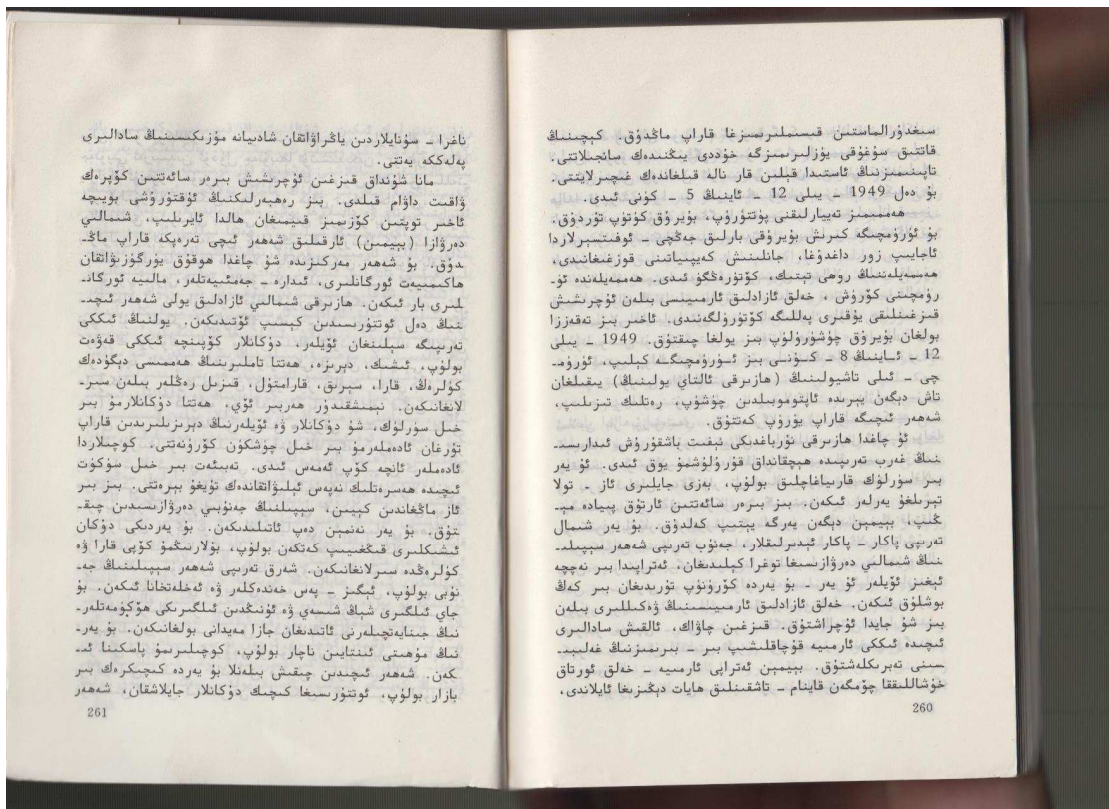 سىغدۇرالماستىن قىسىملىرىمىزغا قاراپ ماڭدۇق. كېچىنىڭ
قاتتىق سوغۇقى يۈزلىرىمىزگە خۇددى يىڭنىدەك سانجىلاتتى.
تاپىنىمىزنىڭ ئاستىدا قېلىن قار نالە قىلغاندەك غىچىرلايتتى.
بۇ دەل 1949 ـ يىلى 12 ـ ئاينىڭ 5 ـ كۈنى ئىدى.
ھەممىمىز تەييارلىقنى پۈتتۈرۈپ، بۇيرۇق كۈتۈپ تۇردۇق.
بۇ ئۈرۈمچىگە كىرىش بۇيرۇقى بارلىق جەڭچى ـ ئوفىتسېرلاردا
ئاجايىپ زور داغدۇغا، جانلىنىش كەيپىياتىنى قوزغىغانىدى،
ھەممەيلەننىڭ روھى تېتىك، كۆتۈرەڭگۈ ئىدى. ھەممەيلەندە ئۈ-
رۈمچىنى كۆرۈش ، خەلق ئازادلىق ئارمىيىسى بىلەن ئۇچرىشىش
قىزغىنلىقى يۇقىرى پەللىگە كۆتۈرۈلگەنىدى. ئاخىر بىز تەقەززا
بولغان بۇيرۇق چۈشۈرۈلۈپ بىز يولغا چىقتۇق. 1949 ـ يىلى
12 ـ ئاينىڭ 8 ـ كۈنى بىز ئۈرۈمچىگە كېلىپ، ئۈرۈم-
چى ـ ئىلى تاشيولىنىڭ (ھازىرقى ئالتاي يولىنىڭ) يىقىلغان
تاش دېگەن يېرىدە ئاپتوموبىلدىن چۈشۈپ، رەتلىك تىزىلىپ،
شەھەر ئىچىگە قاراپ يۈرۈپ كەتتۇق.
ئۇ چاغدا ھازىرقى نۇرباغدىكى نېفىت باشقۇرۇش ئىدارىسى-
نىڭ غەرب تەرىپىدە ھېچقانداق قۇرۇلۇشمۇ يوق ئىدى. ئۇ يەر
بىر سۈرلۈك قارىياغاچلىق بولۇپ، بەزى جايلىرى ئاز ـ تولا
تېرىلغۇ يەرلەر ئىكەن. بىز بىرەر سائەتتىن ئارتۇق پىيادە مې-
ڭىپ، بېيمېن دېگەن يەرگە يېتىپ كەلدۇق. بۇ يەر شىمال
تەرىپى پاكار ـ پاكار ئېدىرلىقلار، جەنۇب تەرىپى شەھەر سېپىلى-
نىڭ شىمالىي دەرۋازىسىغا توغرا كېلىدىغان، ئەتراپىدا بىر نەچچە
ئېغىز ئۆيلەر ئۇ يەر ـ بۇ يەردە كۆرۈنۈپ تۇرىدىغان بىر كەڭ
بوشلۇق ئىكەن. خەلق ئازادلىق ئارمىيىسىنىڭ ۋەكىللىرى بىلەن
بىز شۇ جايدا ئۇچراشتۇق. قىزغىن چاۋاك، ئالقىش سادالىرى
ئىچىدە ئىككى ئارمىيە قۇچاقلىشىپ بىر ـ بىرىمىزنىڭ غەلىبى-
سىنى تەبرىكلەشتۇق. بېيمېن ئەتراپى ئارمىيە ـ خەلق ئورتاق
خۇشاللىققا چۆمگەن قاينام ـ تاشقىنلىق ھايات دېڭىزىغا ئايلاندى،
260
ناغرا ـ سۇنايلاردىن ياڭراۋاتقان شادىيانە مۇزىكىسىنىڭ سادالىرى
پەلەككە يەتتى.
مانا شۇنداق قىزغىن ئۇچرىشىش بىرەر سائەتتىن كۆپرەك
ۋاقىت داۋام قىلدى. بىز رەھبەرلىكنىڭ ئۇقتۇرۇشى بويىچە
ئاخىر توپتىن كۆزىمىز قىيمىغان ھالدا ئايرىلىپ، شىمالىي
دەرۋازا (بېيمېن) ئارقىلىق شەھەر ئىچى تەرەپكە قاراپ ماڭ-
دۇق. بۇ شەھەر مەركىزىدە شۇ چاغدا ھوقۇق يۈرگۈزۈۋاتقان
ھاكىمىيەت ئورگانلىرى، ئىدارە ـ جەمئىيەتلەر، مالىيە ئورگان-
لىرى بار ئىكەن. ھازىرقى شىمالىي ئازادلىق يولى شەھەر ئىچى-
نىڭ دەل ئوتتۇرىسىدىن كېسىپ ئۆتىدىكەن. يولنىڭ ئىككى
تەرىپىگە سېلىنغان ئۆيلەر، دۇكانلار كۆپىنچە ئىككى قەۋەت
بولۇپ، ئىشىك، دېرىزە، ھەتتا تاملىرىنىڭ ھەممىسى دېگۈدەك
كۈلرەڭ، قارا، سېرىق، قارامتۇل، قىزىل رەڭلەر بىلەن سىر-
لانغانىكەن. نېمىشقىدۇر ھەربىر ئۆي، ھەتتا دۇكانلارمۇ بىر
خىل سۈرلۈك، شۇ دۇكانلار ۋە ئۆيلەرنىڭ دېرىزىلىرىدىن قاراپ
تۇرغان ئادەملەرمۇ بىر خىل چۈشكۈن كۆرۈنەتتى، كوچىلاردا
ئادەملەر ئانچە كۆپ ئەمەس ئىدى. تەبىئەت بىر خىل سۈكۈت
ئىچىدە ھەسرەتلىك نەپەس ئېلىۋاتقاندەك تۇيغۇ بېرەتتى. بىز بىر
ئاز ماڭغاندىن كېيىن، سېپىلنىڭ جەنۇبىي دەرۋازىسىدىن چىق-
تۇق. بۇ يەر نەنمېن دەپ ئاتىلىدىكەن. بۇ يەردىكى دۇكان
ئىشىكلىرى قىڭغىيىپ كەتكەن بولۇپ، بۇلارنىڭمۇ كۆپى قارا ۋە
كۈلرەڭدە سىرلانغانىكەن. شەرق تەرىپى شەھەر سېپىلىنىڭ جە-
نۇبى بولۇپ، ئېگىز ـ پەس خەندەكلەر ۋە ئەخلەتخانا ئىكەن. بۇ
جاي ئىلگىرى شېڭ شىسەي ۋە ئۇنىڭدىن ئىلگىرىكى ھۆكۈمەتلەر-
نىڭ جىنايەتچىلەرنى ئاتىدىغان جازا مەيدانى بولغانىكەن. بۇ يەر-
نىڭ مۇھىتى ئىنتايىن ناچار بولۇپ، كوچىلىرىمۇ پاسكىنا ئى-
كەن. شەھەر ئىچىدىن چىقىش بىلەنلا بۇ يەردە كىچىكرەك بىر
بازار بولۇپ، ئوتتۇرىسىغا كىچىك دۇكانلار جايلاشقان، شەھەر
261